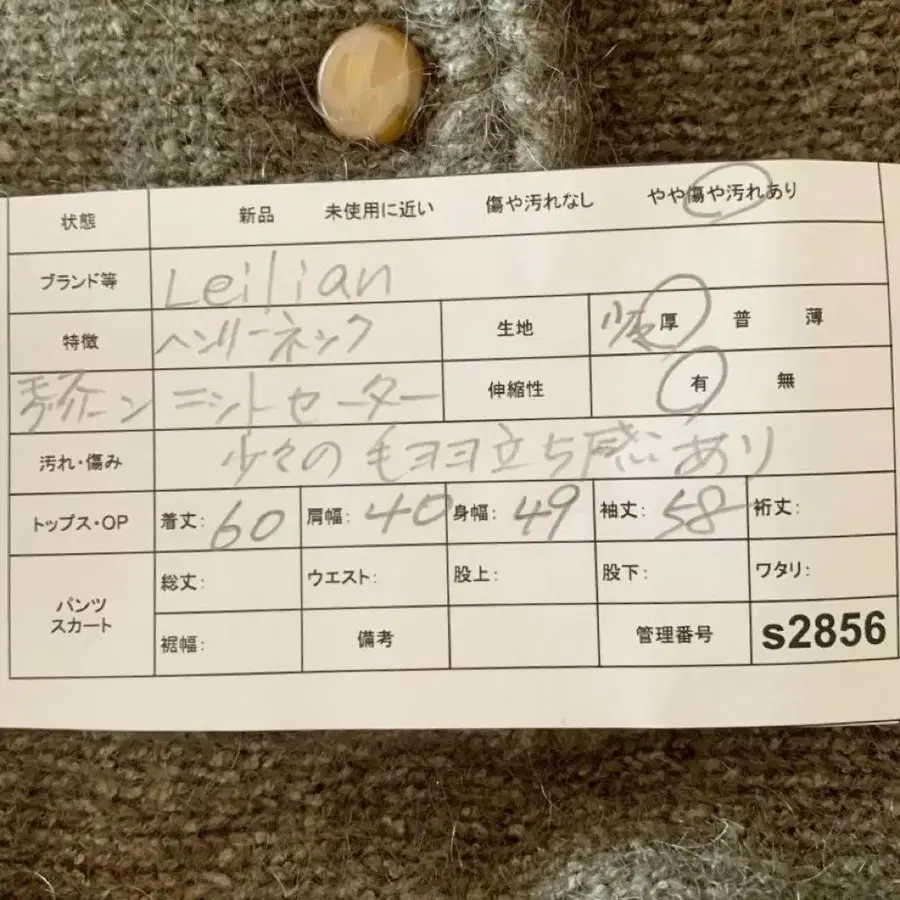 状態 新品 未使用に近い 傷や汚れなし やや傷や汚れあり
ブランド等 Leilian
特徴 ヘンリーネック 生地 厚 普 薄
ニットセーター 伸縮性 有 無
汚れ・傷み 少々の毛ヨヨ立ち感あり
トップス・OP 着丈: 60 肩幅: 40 身幅: 49 袖丈: 58 裄丈:
パンツ スカート 総丈: ウエスト: 股上: 股下: ワタリ:
裾幅: 備考 管理番号 s2856